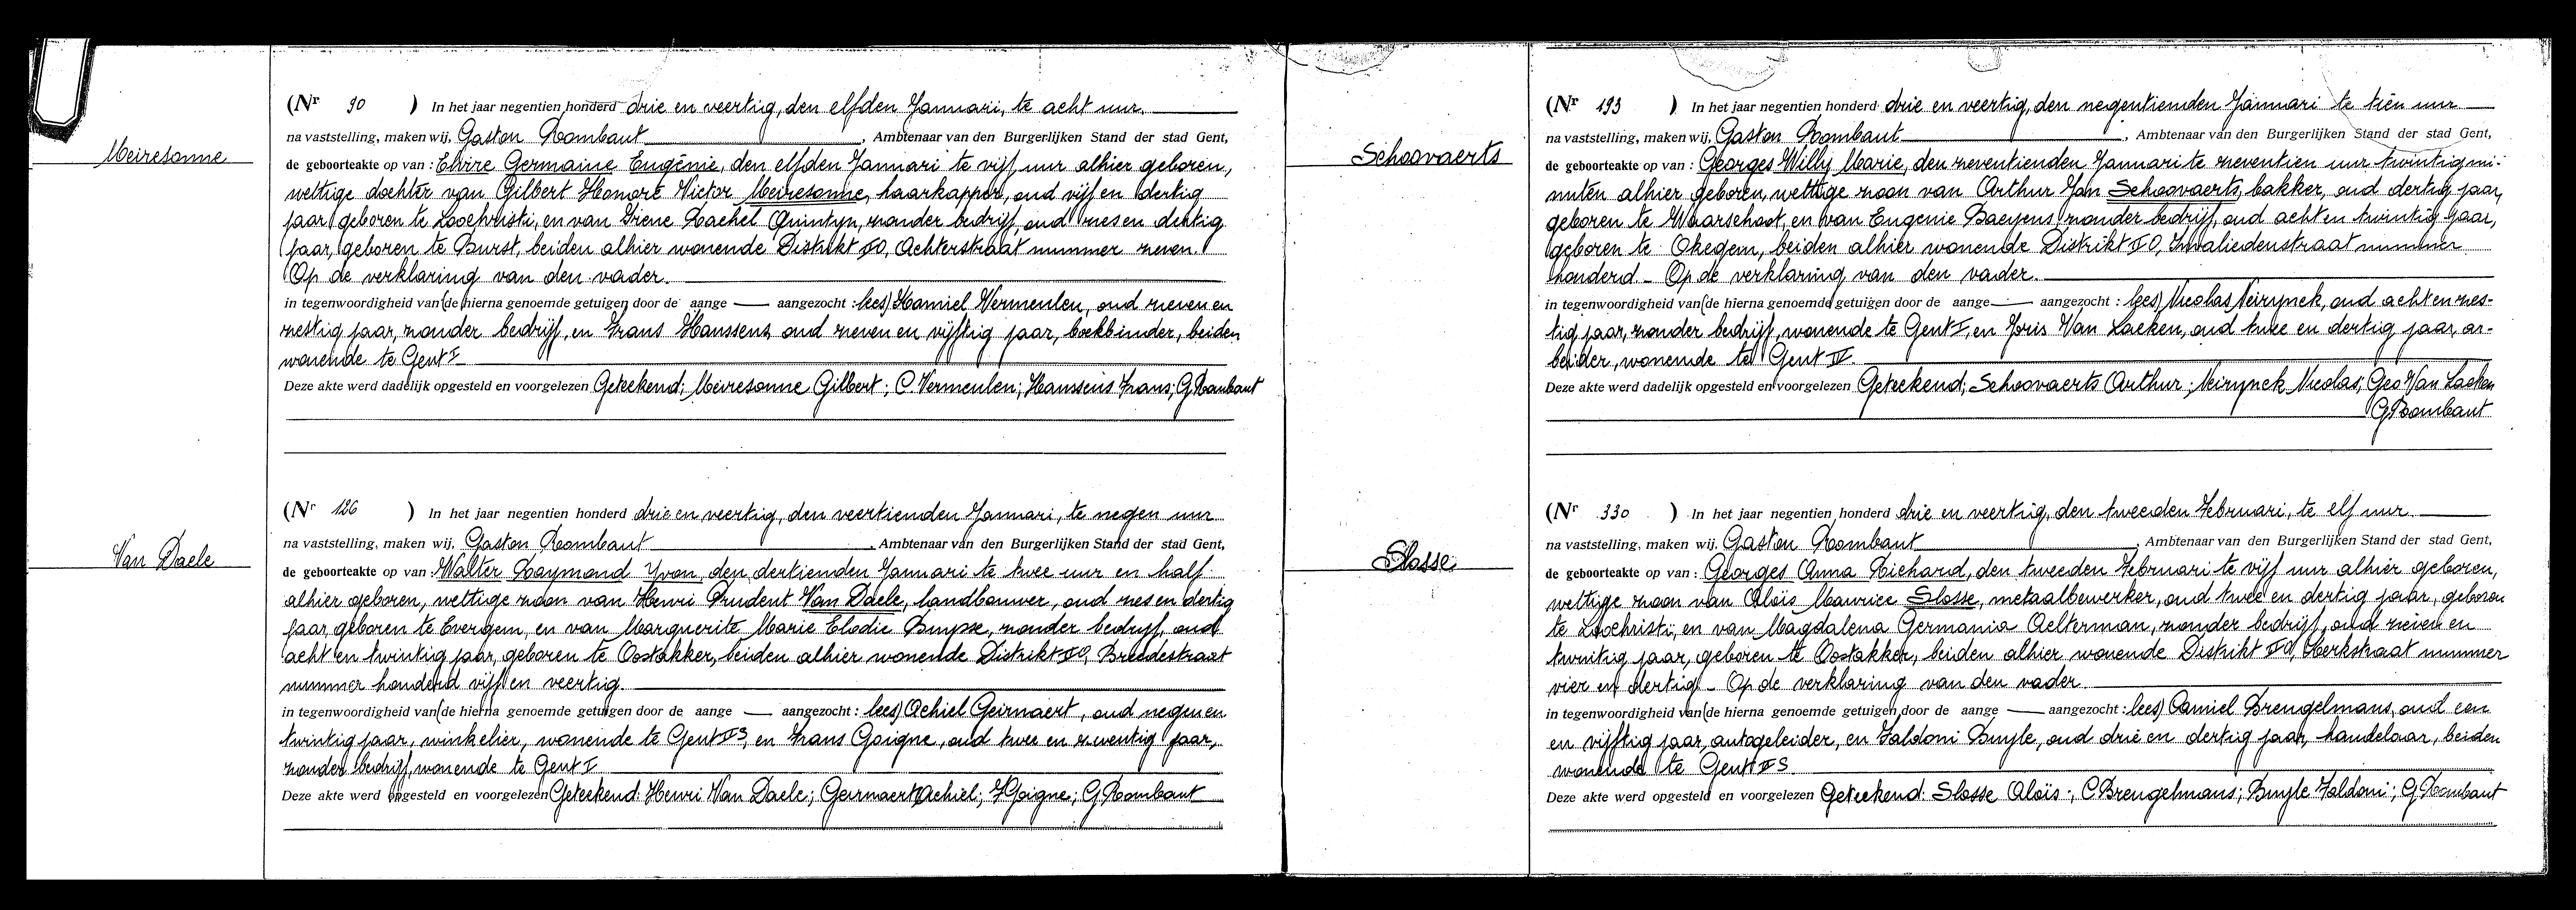 Meiresonne
(Nr 90 ) In het jaar negentien honderd drie en veertig, den elfden Januari, te acht uur.
na vaststelling, maken wij, Gaston Rombaut, Ambtenaar van den Burgerlijken Stand der stad Gent,
de geboorteakte op van : Elvire Germaine Eugénie, den elfden Januari te vijf uur alhier geboren,
wettige dochter van Gilbert Honoré Victor Meiresonne, haarkapper, oud vijf en dertig
jaar, geboren te Loochristi, en van Irene Rachel Quintyn, zonder bedrijf, oud zes en dertig
jaar, geboren te Burst, beiden alhier wonende Distrikt IIO, Achterstraat nummer zeven.
Op de verklaring van den vader.
in tegenwoordigheid van (de hierna genoemde getuigen door de aange — aangezocht : lees) Kamiel Vermeulen, oud zeven en
zestig jaar, zonder bedrijf, en Frans Hanssens, oud zeven en vijftig jaar, boekbinder, beiden
wonende te Gent I
Deze akte werd dadelijk opgesteld en voorgelezen Geteekend; Meiresonne Gilbert; C. Vermeulen; Hanssens Frans; G Rombaut
Van Daele
(Nr 126 ) In het jaar negentien honderd drie en veertig, den veertienden Januari, te negen uur
na vaststelling, maken wij, Gaston Rombaut, Ambtenaar van den Burgerlijken Stand der stad Gent,
de geboorteakte op van : Walter Raymond Yvon, den dertienden Januari te twee uur en half
alhier geboren, wettige zoon van Henri Prudent Van Daele, landbouwer, oud zes en dertig
jaar, geboren te Evergem, en van Marguerite Marie Elodie Buysse, zonder bedrijf, oud
acht en twintig jaar, geboren te Oostakker, beiden alhier wonende Distrikt IIO, Breedestraat
nummer honderd vijf en veertig.
in tegenwoordigheid van (de hierna genoemde getuigen door de aange — aangezocht : lees) Achiel Geirnaert, oud negen en
twintig jaar, winkelier, wonende te Gent IIS, en Frans Goigne, oud twee en zeventig jaar,
zonder bedrijf, wonende te Gent I
Deze akte werd opgesteld en voorgelezen Geteekend: Henri Van Daele; Geirnaert Achiel; F Goigne; G. Rombaut
Schoovaerts
(Nr 193 ) In het jaar negentien honderd drie en veertig, den negentienden Januari te tien uur
na vaststelling, maken wij, Gaston Rombaut, Ambtenaar van den Burgerlijken Stand der stad Gent,
de geboorteakte op van : Georges Willy Marie, den zeventienden Januari te zeventien uur twintig mi-
nuten alhier geboren, wettige zoon van Arthur Jan Schoovaerts, bakker, oud dertig jaar,
geboren te Waarschoot, en van Eugenie Baeyens zonder bedrijf, oud acht en twintig jaar,
geboren te Okegem, beiden alhier wonende Distrikt IIO, Invaliedenstraat nummer
honderd – Op de verklaring van den vader.
in tegenwoordigheid van (de hierna genoemde getuigen door de aange — aangezocht : lees) Nicolas Neirynck, oud acht en zes-
tig jaar, zonder bedrijf, wonende te Gent I, en Joris Van Laeken, oud twee en dertig jaar, ar-
beider, wonende te Gent IV.
Deze akte werd dadelijk opgesteld en voorgelezen Geteekend; Schoovaerts Arthur; Neirynck Nicolas; Geo Van Laeken
G Rombaut
Slosse
(Nr 330 ) In het jaar negentien honderd drie en veertig, den tweeden Februari, te elf uur.
na vaststelling, maken wij, Gaston Rombaut, Ambtenaar van den Burgerlijken Stand der stad Gent,
de geboorteakte op van : Georges Anna Richard, den tweeden Februari te vijf uur alhier geboren,
wettige zoon van Aloïs Maurice Slosse, metaalbewerker, oud twee en dertig jaar, geboren
te Loochristi, en van Magdalena Germania Aelterman, zonder bedrijf, oud zeven en
twintig jaar, geboren te Oostakker, beiden alhier wonende Distrikt IIO, Kerkstraat nummer
vier en dertig – Op de verklaring van den vader.
in tegenwoordigheid van (de hierna genoemde getuigen door de aange — aangezocht : lees) Camiel Breugelmans, oud een
en vijftig jaar, autogeleider, en Faldoni Buyle, oud drie en dertig jaar, handelaar, beiden
wonende te Gent IIS.
Deze akte werd opgesteld en voorgelezen Geteekend: Slosse Aloïs; C. Breugelmans; Buyle Faldoni; G Rombaut